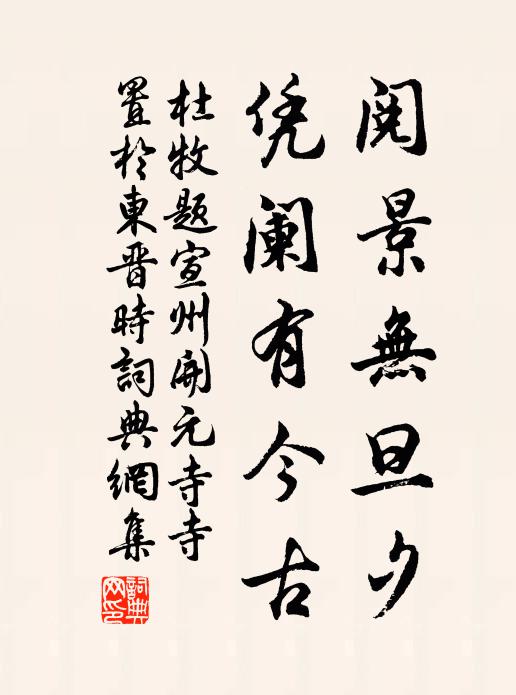 閱景無旦夕
凭阑有今古
杜牧題宣州開元寺寺
置於東晋時詞典網集
詞典网印